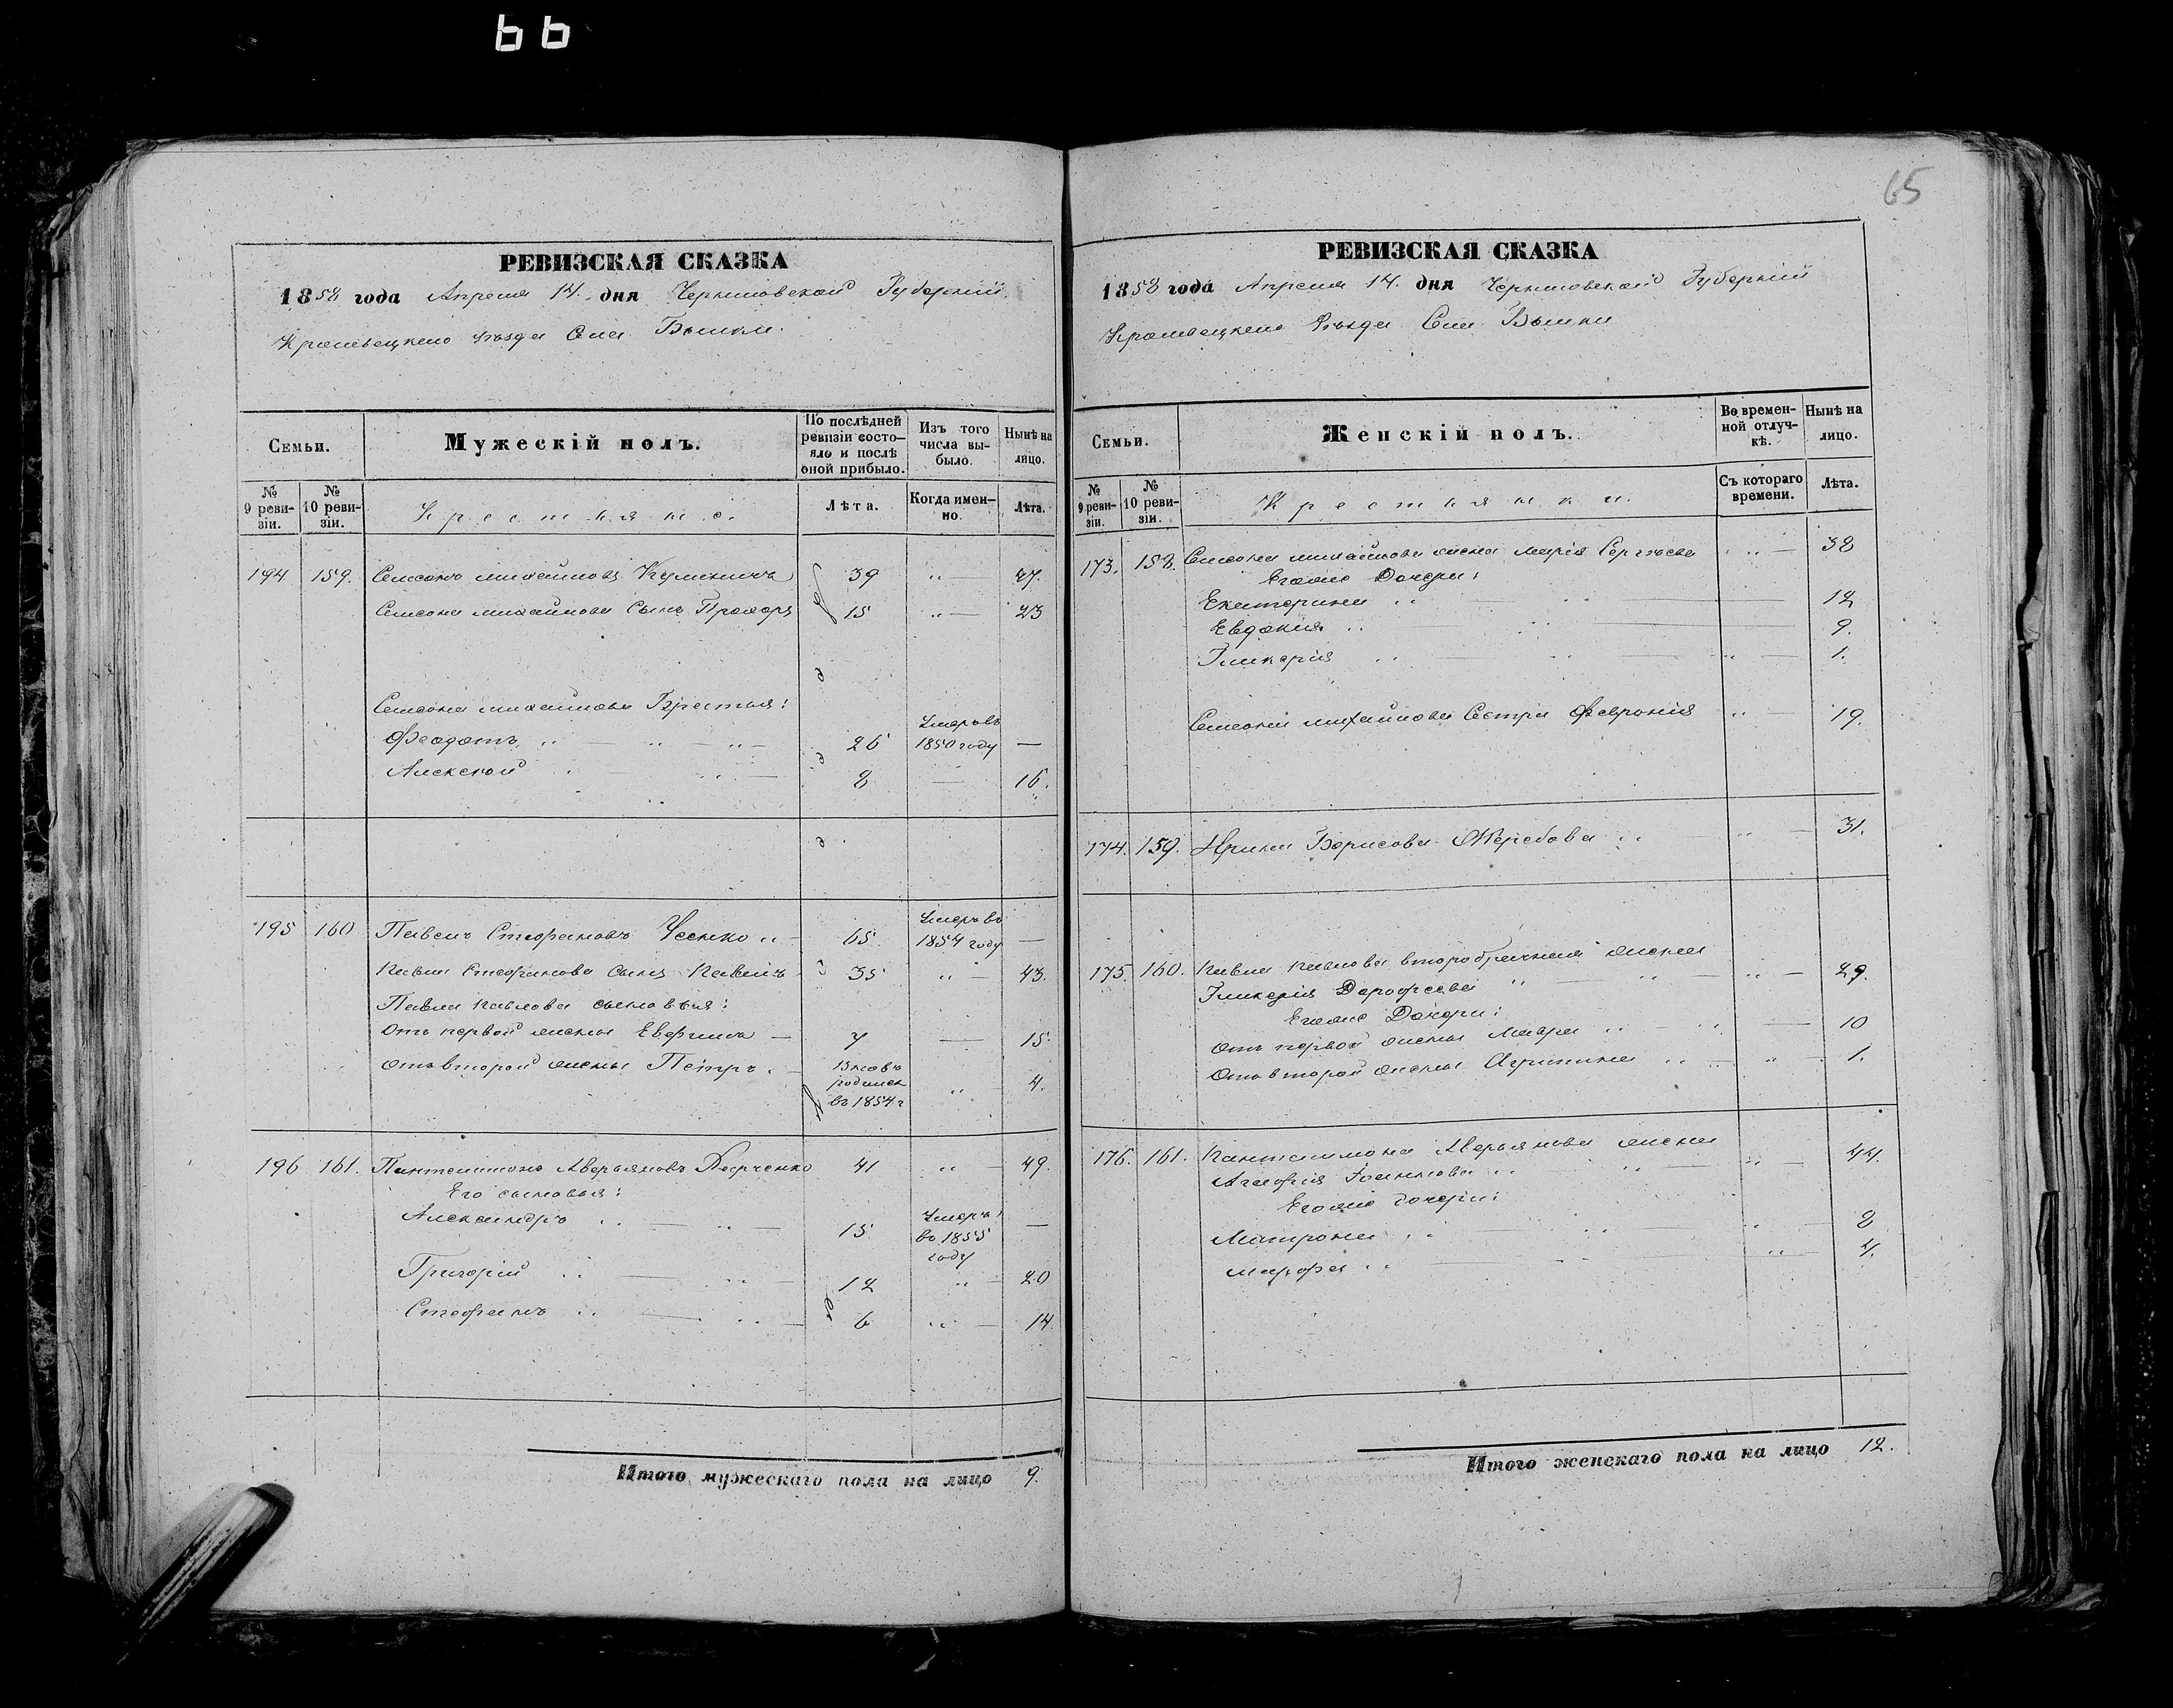 66
65
РЕВИЗСКАЯ СКАЗКА
1858 года Апреля 14. дня Черниговской Губерніи
Кролевецкого уѣзда Села Быики.
Семьи.
Мужескій полъ.
По послѣдней ревизіи состояло и послѣ оной прибыло.
Изъ того числа выбыло.
Нынѣ на лицо.
№ 9 ревизіи.
№ 10 ревизіи.
Крестьяне.
Лѣта.
Когда именно.
Лѣта.
194 159. Симеонъ Михайловъ 39 „ — 47.
Симеона Михайлова Сынъ Прохоръ 15 „ — 23
Симеона Михайлова Братья:
Феодотъ „ — „ — „ — 26 Умеръ въ 1850 году —
Алексѣй „ — 8 — 16.
195 160 Павелъ Стефановъ Усенко „ 65. Умеръ въ 1854 году —
Павла Стефанова сынъ Павелъ 35 „ — 43.
Павла Павлова сыновья:
Отъ первой жены — 7 — 15.
Отъ второй жены Петръ. — Вновь родился въ 1854 г „ 4.
196 161. Пантелимонъ Аверьяновъ 41 „ 49.
Его сыновья:
Александръ „ — „ — 15. Умеръ въ 1855 году —
Григорій „ — „ — 12 „ — 20
Стефанъ „ — „ — 6 „ — 14.
Итого мужескаго пола на лицо 9.
РЕВИЗСКАЯ СКАЗКА
1858 года Апреля 14. дня Черниговской Губерніи
Кролевецкого Уѣзда Села Быики
Семьи.
Женскій полъ.
Во временной отлучкѣ.
Нынѣ на лицо.
№ 9 ревизіи.
№ 10 ревизіи.
Крестьянки.
Съ котораго времени.
Лѣта.
173. 158. Симеона Михайлова жена Марія Сергѣева „ — 38
Егоже Дочери:
Екатерина „ — „ — 12
Евдокия „ — „ — 9.
Гликерія „ — „ — „ — 1.
Симеона Михайлова Сестра Феврония „ — 19.
174. 159. Ирина Борисова Жеребова „ „ — 31.
175. 160. Павла Павлова второбрачная жена
Гликерія Дорофеева „ — „ — „ — 29.
Егоже Дочери:
Отъ первой жены Мавра „ „ — 10
Отъ второй жены Агрипина „ — „ — 1.
176. 161. Пантелимона Аверьянова жена
Агафія Іоаннова „ „ — „ — 44.
Егоже дочери:
Матрона „ — „ „ — 8
Марфа „ — „ — 4.
Итого женскаго пола на лицо 12.